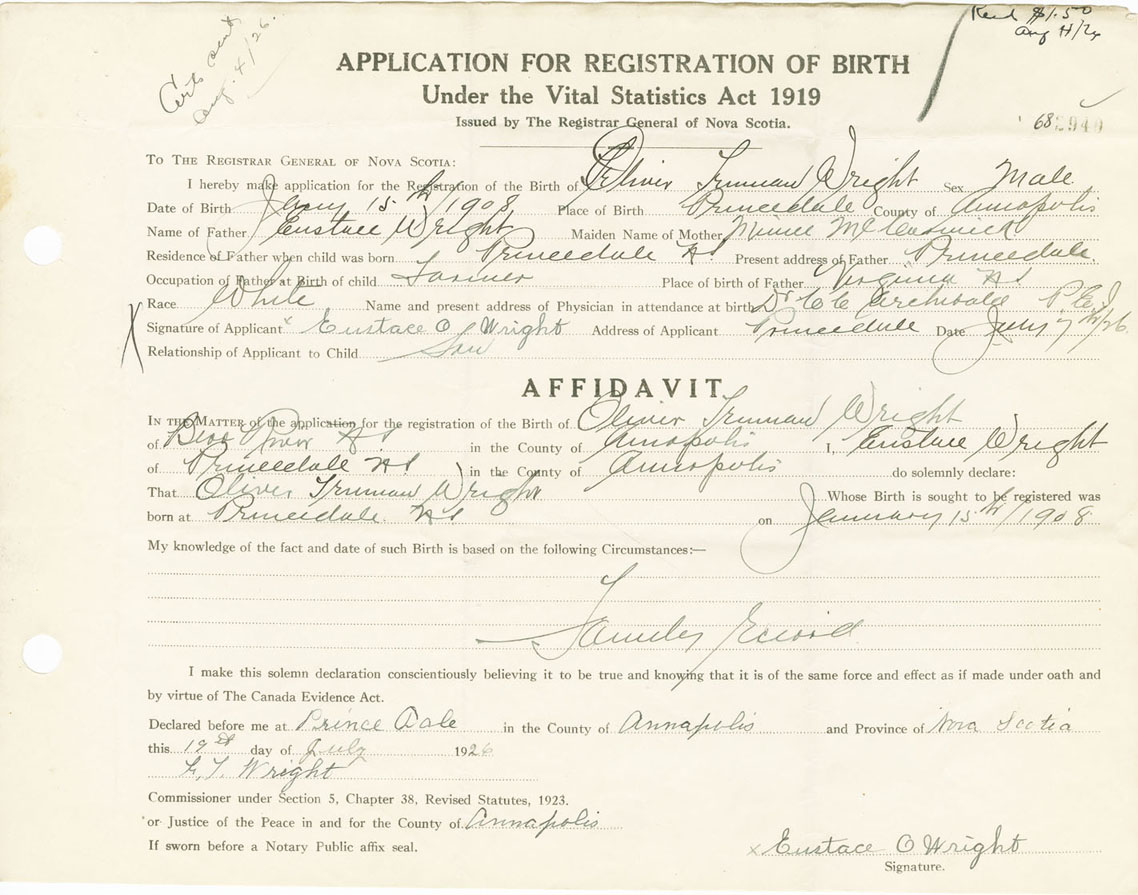 Certs sent Aug. 4/26.
Recd $1.50
Aug 4/26
APPLICATION FOR REGISTRATION OF BIRTH
Under the Vital Statistics Act 1919
Issued by The Registrar General of Nova Scotia.
TO THE REGISTRAR GENERAL OF NOVA SCOTIA:
I hereby make application for the Registration of the Birth of Oliver Truman Wright Sex Male
Date of Birth Jany 15th/1908 Place of Birth Princedale County of Annapolis
Name of Father Eustace Wright Maiden Name of Mother Minnie
Residence of Father when child was born Princedale NS Present address of Father Princedale.
Occupation of Father at Birth of child Farmer Place of birth of Father Virginia NS
Race White Name and present address of Physician in attendance at birth Dr C C Archibald P.E.I.
Signature of Applicant x Eustace O Wright Address of Applicant Princedale Date July 7th/26
Relationship of Applicant to Child Son
AFFIDAVIT
IN THE MATTER of the application for the registration of the Birth of Oliver Truman Wright
of Bear River NS in the County of Annapolis I, Eustace Wright
of Princedale NS in the County of Annapolis do solemnly declare:
That Oliver Truman Wright Whose Birth is sought to be registered was
born at Princedale. NS on January 15th/1908
My knowledge of the fact and date of such Birth is based on the following Circumstances:—
Family Record
I make this solemn declaration conscientiously believing it to be true and knowing that it is of the same force and effect as if made under oath and
by virtue of The Canada Evidence Act.
Declared before me at Prince Dale in the County of Annapolis and Province of Nova Scotia
this day of July 1926
Wright
Commissioner under Section 5, Chapter 38, Revised Statutes, 1923.
or Justice of the Peace in and for the County of Annapolis
If sworn before a Notary Public affix seal.
x Eustace O Wright
Signature.